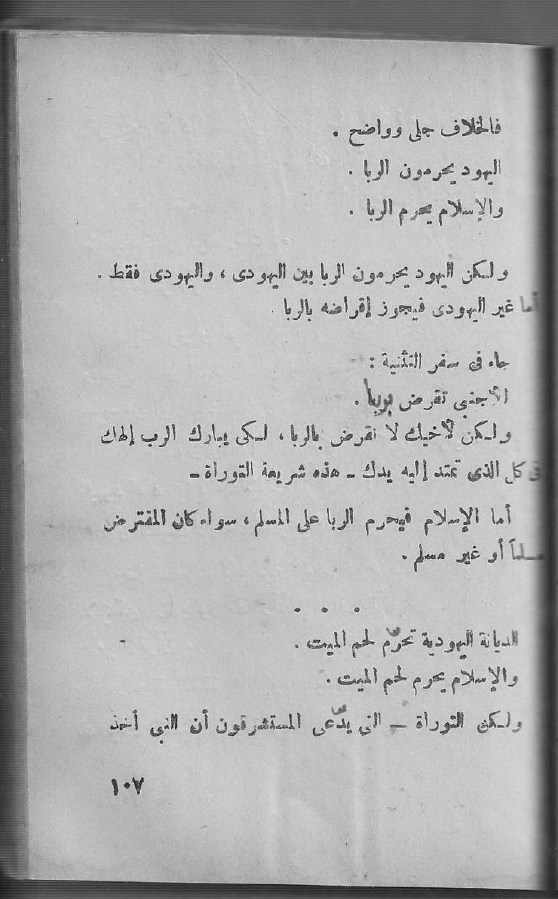 فالخلاف جلى وواضح .
اليهود يحرمون الربا .
والإسلام يحرم الربا .
ولكن اليهود يحرمون الربا بين اليهودى ، واليهودى فقط .
أما غير اليهودى فيجوز إقراضه بالربا
جاء فى سفر التثنية :
الأجنبى تقرض بربا .
ولكن لأخيك لا تقرض بالربا ، لكى يبارك الرب إلهك
فى كل الذى تمتد إليه يدك ــ هذه شريعة التوراة ــ
أما الإسلام فيحرم الربا على المسلم ، سواء كان المقترض
مسلماً أو غير مسلم .
. . .
الديانة اليهودية تحرّم لحم الميت .
والإسلام يحرم لحم الميت .
ولكن التوراة ــ التى يدّعى المستشرقون أن النبى أخذ
١٠٧